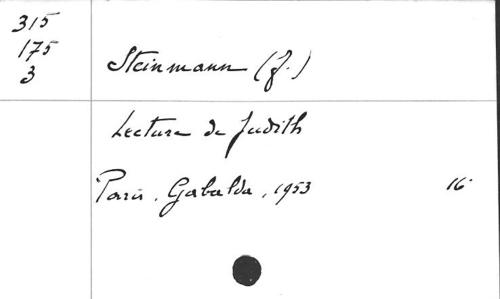 315
175
3
Steinmann (J.)
Lecture de Judith
Paris, Gabalda, 1953 16°